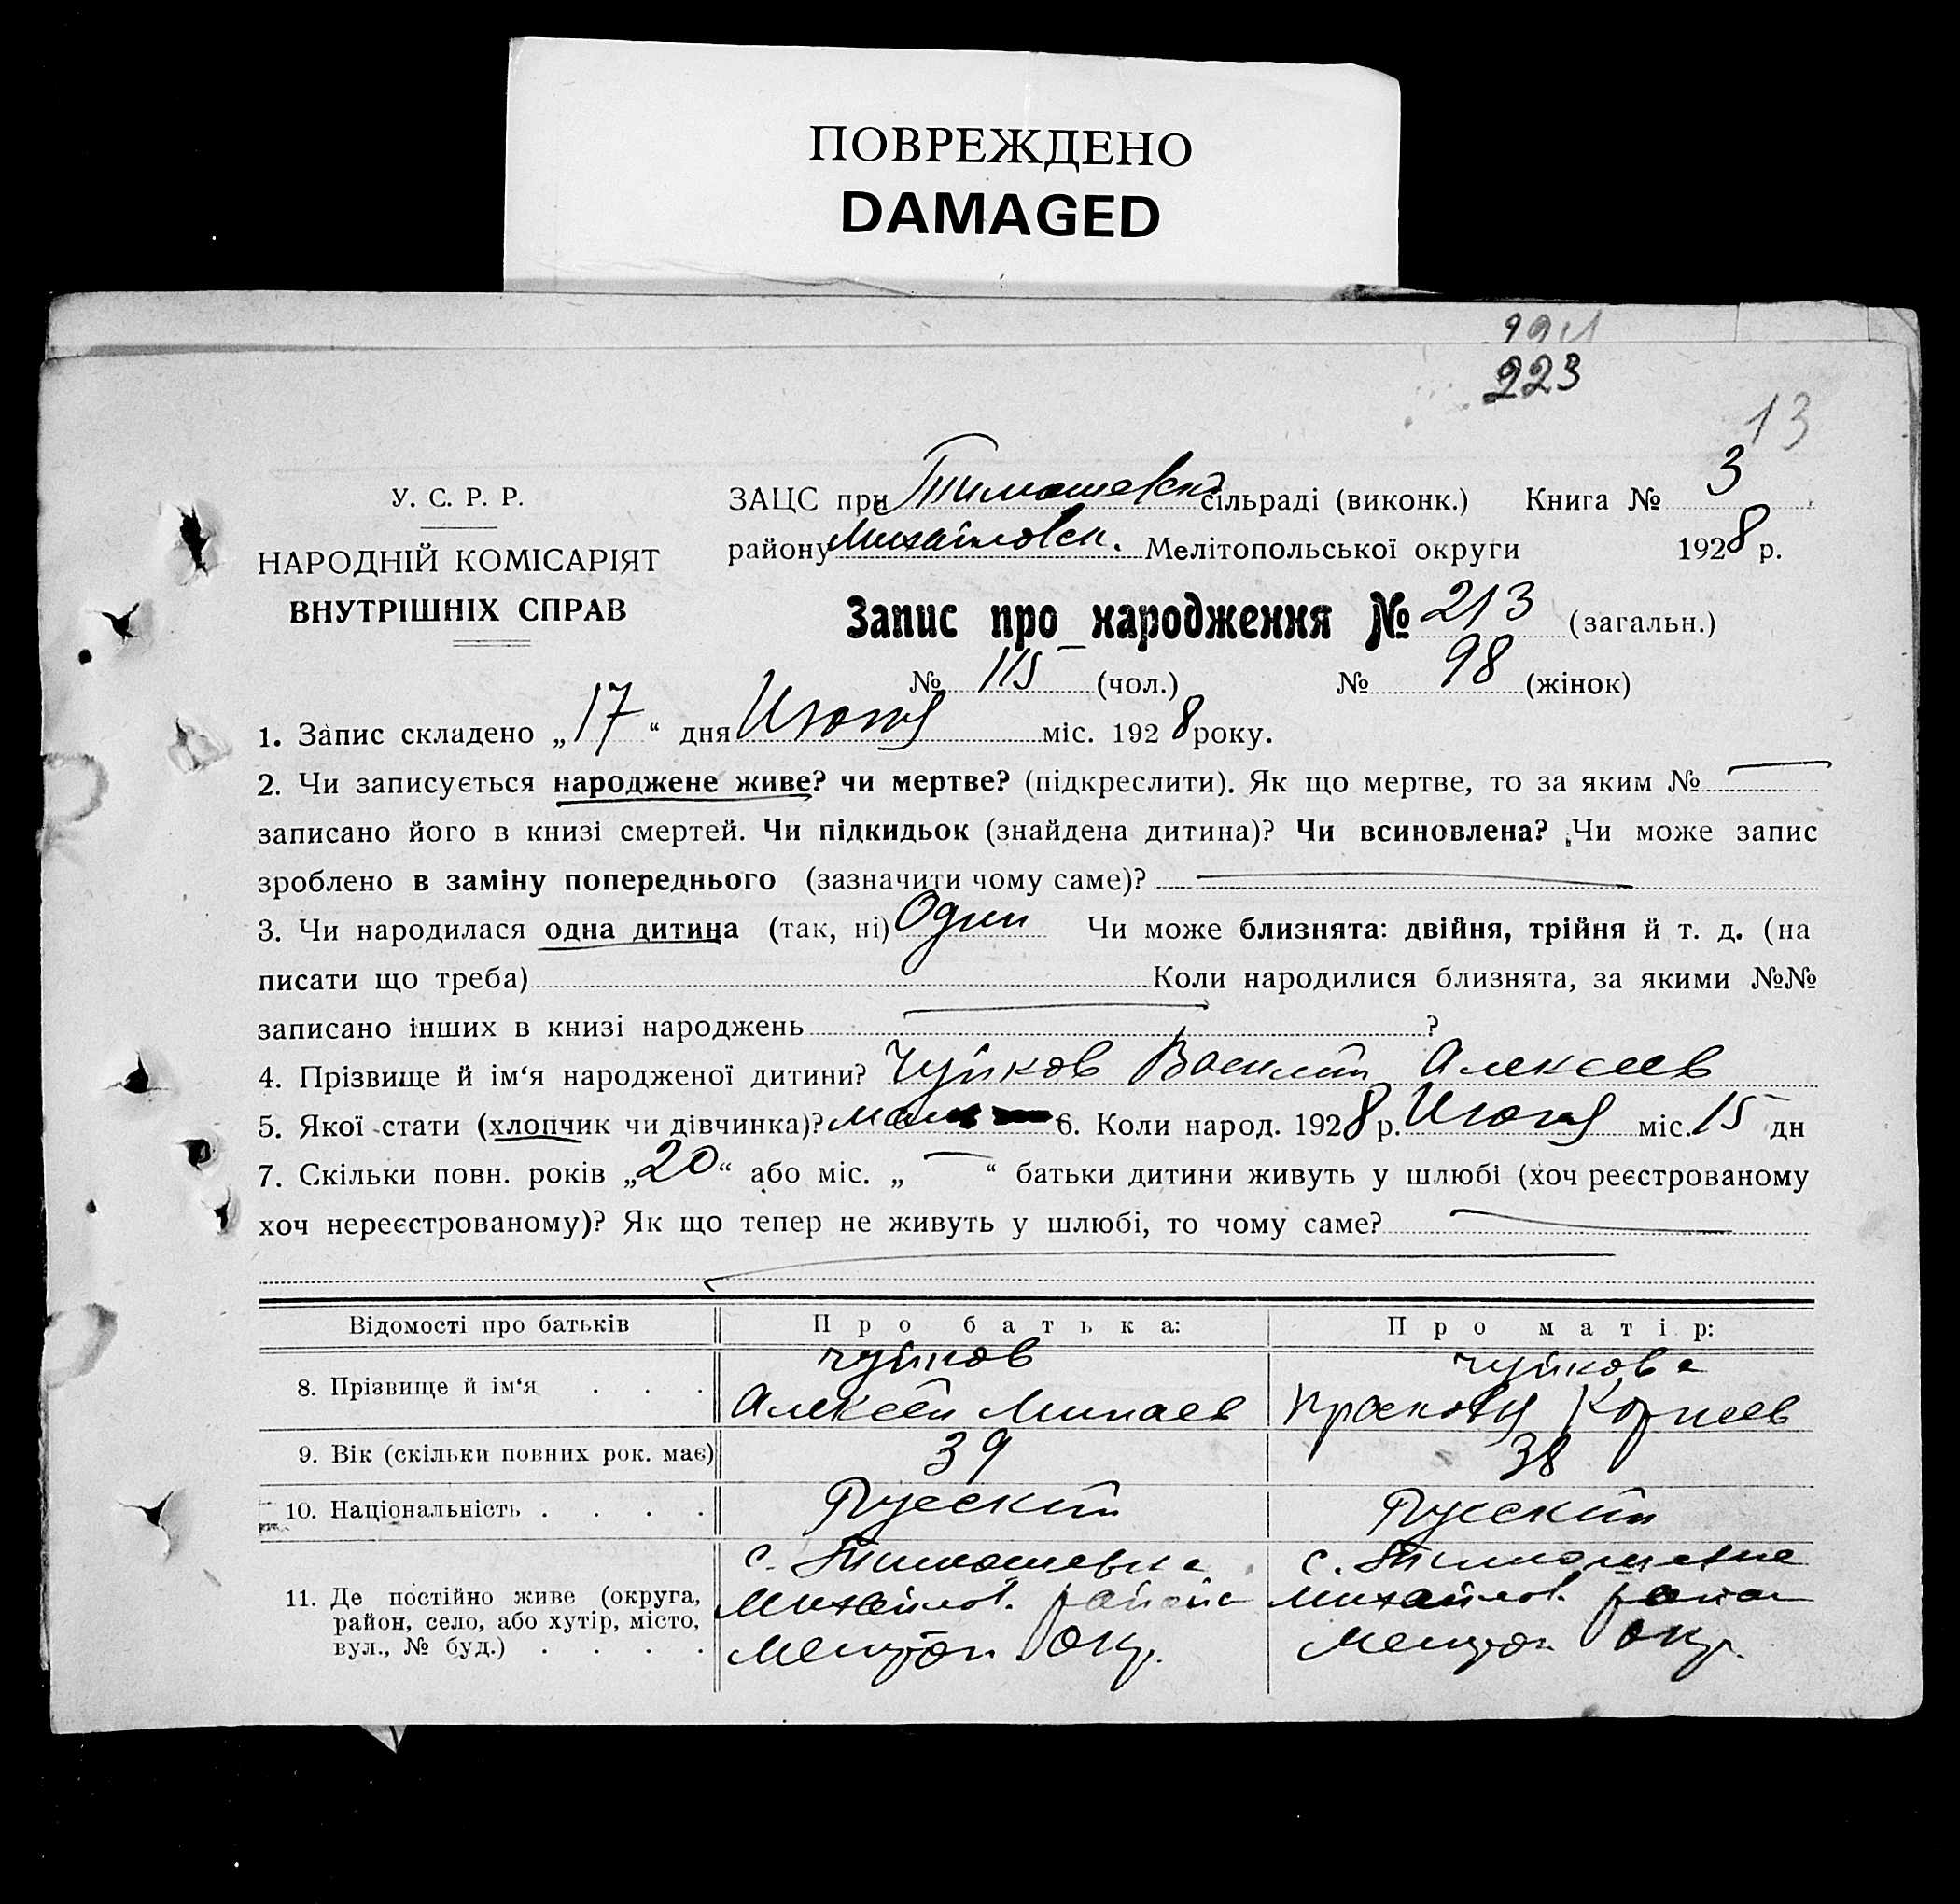 ПОВРЕЖДЕНО
DAMAGED
223
13
У. С. Р. Р.
НАРОДНІЙ КОМІСАРІЯТ
ВНУТРІШНІХ СПРАВ
ЗАЦС при Тимошевск сільраді (виконк.) Книга № 3
району Михайловск. Мелітопольської округи 1928 р.
Запис про народження № 213 (загальн.)
№ 115 (чол.) № 98 (жінок)
1. Запис складено „17“ дня Июля міс. 1928 року.
2. Чи записується народжене живе? чи мертве? (підкреслити). Як що мертве, то за яким №
записано його в книзі смертей. Чи підкидьок (знайдена дитина)? Чи всиновлена? Чи може запис
зроблено в заміну попереднього (зазначити чому саме)?
3. Чи народилася одна дитина (так, ні) Один Чи може близнята: двійня, трійня й т. д. (на
писати що треба) Коли народилися близнята, за якими №№
записано інших в книзі народжень ?
4. Прізвище й ім‘я народженої дитини? Чуйков Василий Алексеев
5. Якої стати (хлопчик чи дівчинка)? мал 6. Коли народ. 1928 р. Июля міс. 15 дн
7. Скільки повн. років „20“ або міс. „ — “ батьки дитини живуть у шлюбі (хоч реєстрованому
хоч нереєстрованому)? Як що тепер не живуть у шлюбі, то чому саме?
Відомості про батьків Про батька: Про матір:
8. Прізвище й ім‘я . . . Чуйков Алексей Минаев Чуйкова Прасковя Корнеев
9. Вік (скільки повних рок. має) 39 38
10. Національність . . . . Русский Русский
11. Де постійно живе (округа, с. Тимошевка с. Тимошевке
район, село, або хутір, місто, Михайлов. района Михайлов. район
вул., № буд.) . . . . Мелитоп. Окр. Мелитоп. Окр.